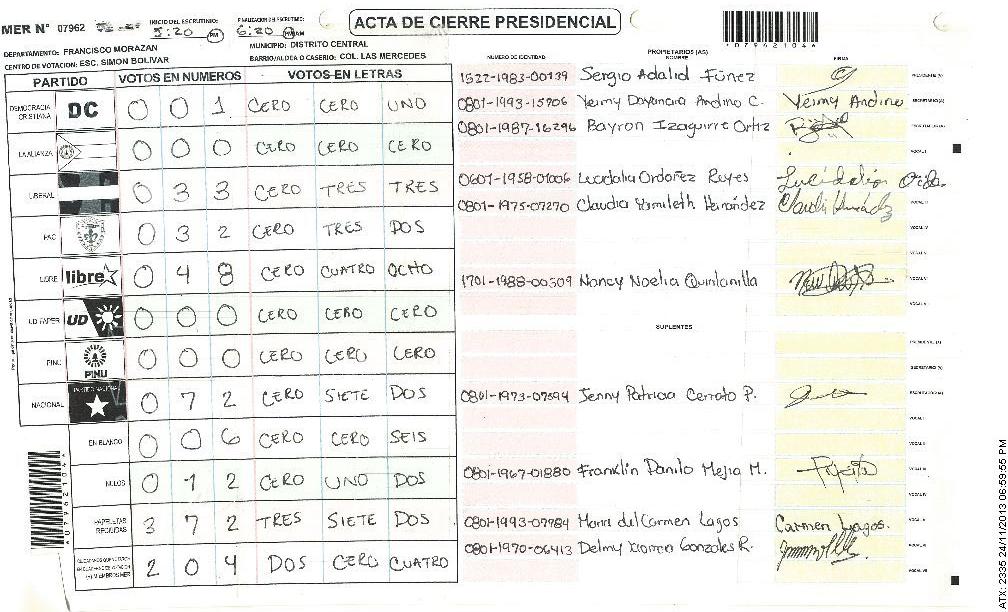 MER N° 07962
INICIO DEL ESCRUTINIO: 5:20 PM
FINALIZACION DEL ESCRUTINIO: 6:20
ACTA DE CIERRE PRESIDENCIAL
*079621046*
DEPARTAMENTO: FRANCISCO MORAZAN
MUNICIPIO: DISTRITO CENTRAL
CENTRO DE VOTACION: ESC. SIMON BOLIVAR
BARRIO/ALDEA O CASERIO: COL. LAS MERCEDES
PARTIDO VOTOS EN NUMEROS VOTOS EN LETRAS
DEMOCRACIA CRISTIANA DC 0 0 1 CERO CERO UNO
LA ALIANZA 0 0 0 CERO CERO CERO
LIBERAL 0 3 3 CERO TRES TRES
PAC 0 3 2 CERO TRES DOS
LIBRE libre 0 4 8 CERO CUATRO OCHO
UD FAPER UD 0 0 0 CERO CERO CERO
PINU PINU 0 0 0 CERO CERO CERO
NACIONAL PARTIDO NACIONAL 0 7 2 CERO SIETE DOS
EN BLANCO 0 0 6 CERO CERO SEIS
NULOS 0 1 2 CERO UNO DOS
PAPELETAS RECIBIDAS 3 7 2 TRES SIETE DOS
2 0 4 DOS CERO CUATRO
NUMERO DE IDENTIDAD PROPIETARIOS (AS) NOMBRE FIRMA
1522-1983-00139 Sergio Adalid Funez PRESIDENTE (A)
0801-1993-15706 Yeimy Dayanara Andino C. Yeimy Andino SECRETARIO (A)
0801-1987-16296 Bayron Izaguirre Ortiz ESCRUTADOR (A)
VOCAL I
0607-1958-01006 Leodalia Ordoñez Reyes
0801-1975-07270 Claudia Yamileth Hernández
VOCAL IV
VOCAL V
1701-1988-00309 Nancy Noelia Quintanilla
SUPLENTES
PRESIDENTE (A)
SECRETARIO (A)
0801-1973-07594 Jenny Patricia Cerrato P. ESCRUTADOR (A)
VOCAL I
VOCAL II
0801-1967-01880 Franklin Danilo Mejia M. VOCAL III
VOCAL IV
0801-1993-07984 Maria del Carmen Lagos Carmen Lagos. VOCAL V
0801-1970-06413 Delmy Xiomara Gonzales R.
VOCAL VII
*079621046*
ATX: 2335 24/11/2013 06:59:55 PM